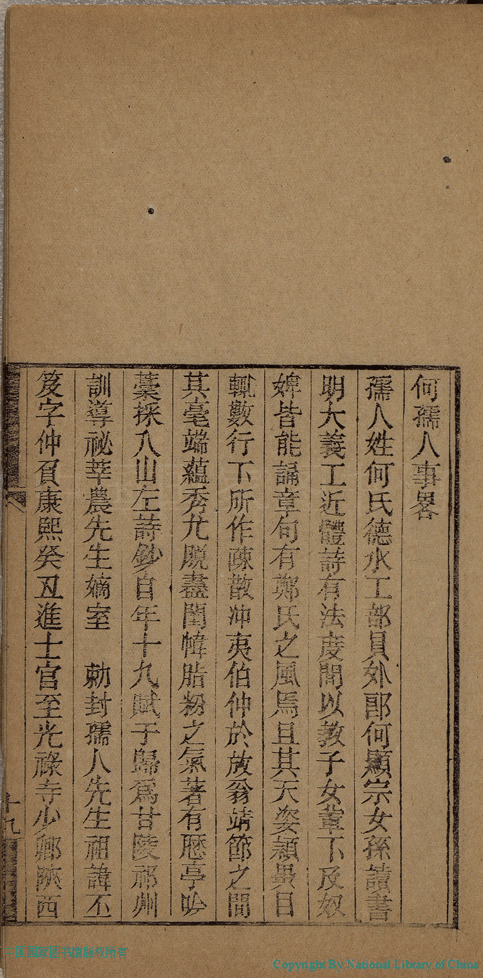 何孺人事畧
孺人姓何氏德水工部員外郎何顯宗女孫讀書
明大義工近體詩有法度間以教子女輩下及奴
婢皆能誦章句有鄭氏之風焉且其天姿穎異目
輒數行下所作疎散冲夷伯仲於放翁靖節之間
其毫端蘊秀尤脱盡閨幃脂粉之氣著有歷亭吟
藁採入山左詩鈔自年十九賦于歸為甘陵邢州
訓導祕莘農先生嫡室 勅封孺人先生祖諱丕
笈字仲負康熙癸丑進士官至光祿寺少鄉陝西
十九
中国国家图书馆版权所有
Copyright By National Library of China